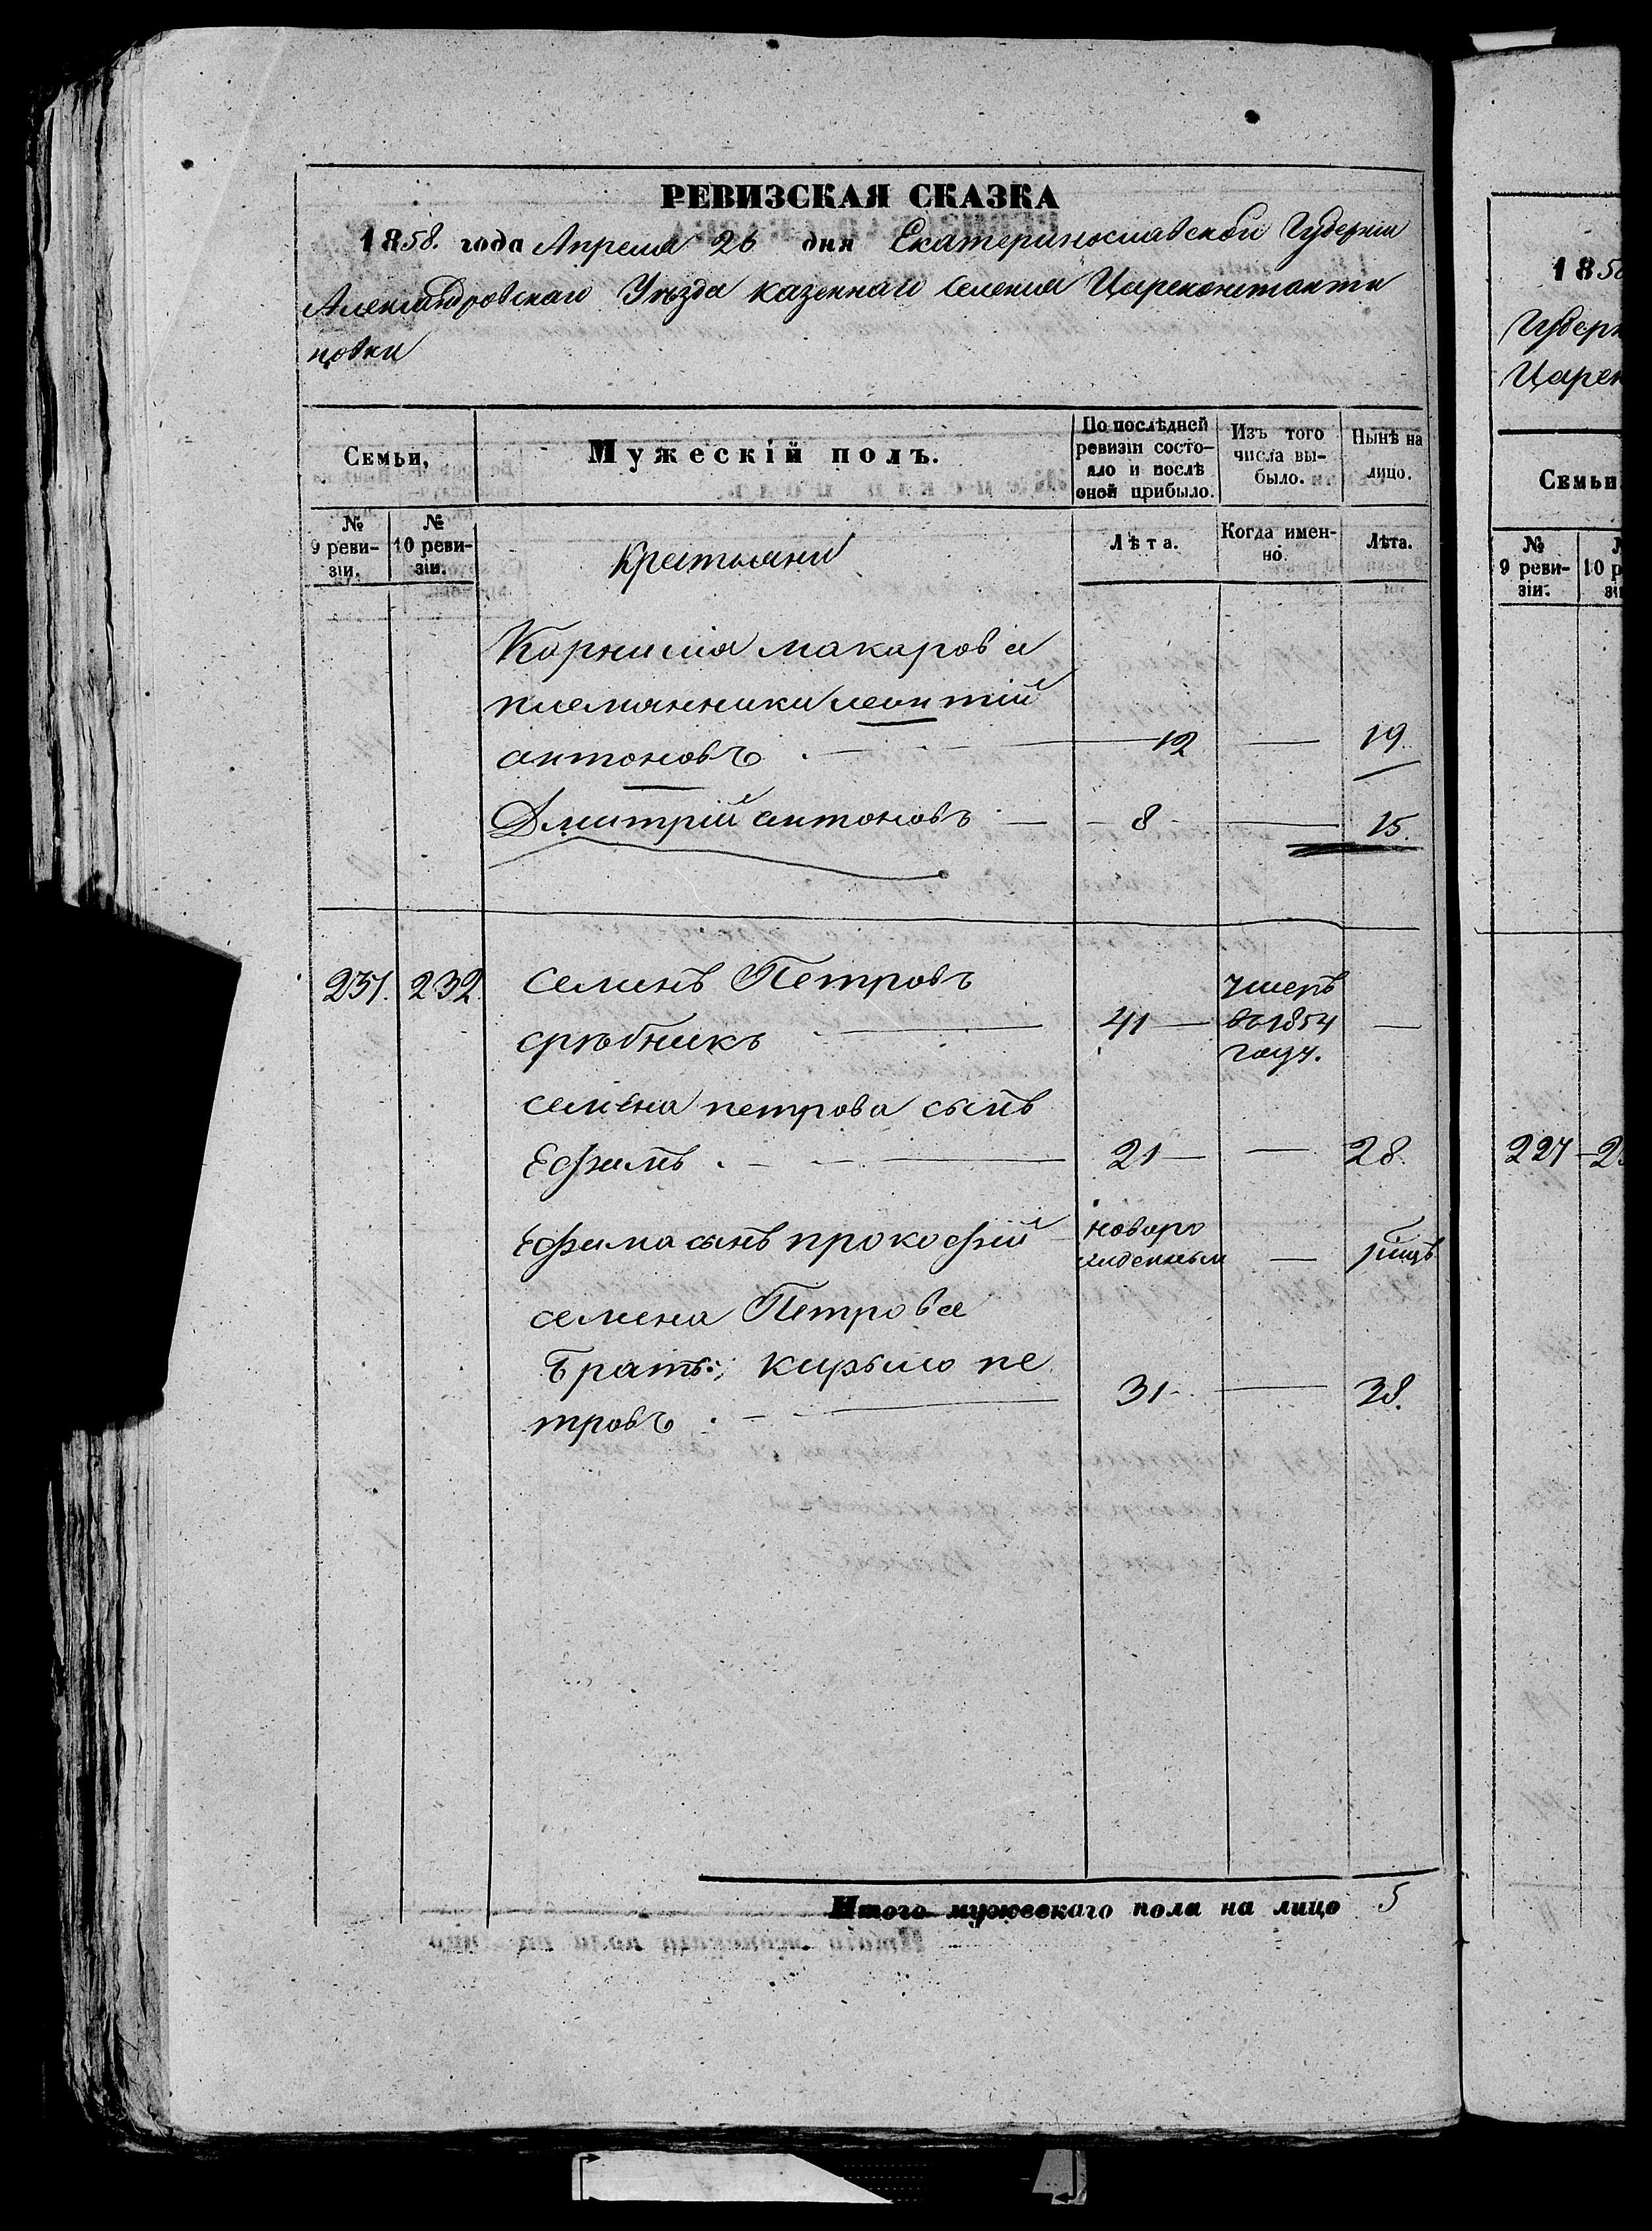 РЕВИЗСКАЯ СКАЗКА
1858. года Апреля 26 дня Екатеринославской Губернии
Александровскаго Уѣзда казеннаго Селения Цареконстанти
новки
Семьи,
Мужескій полъ.
По послѣдней ревизіи состо-
яло и послѣ
оной прибыло.
Изъ того
числа вы-
было.
Нынѣ на
лицо.
№
9 реви-
зіи.
№
10 реви-
зіи.
Крестьяни
Лѣта.
Когда имен-
но.
Лѣта.
Корнилия макарова
племянники леонтий
антоновъ 12 — 19.
Дмитрий антоновъ — 8 — 15.
231. 232. Семенъ Петровъ
срѣбникъ 41 — умеръ в 1854 году. —
семена петрова сынъ
Ефимъ 21 — — 28.
Ефима сынъ прокофий новоро
жденный —
семена Петрова
братъ: кирыло пе
тровъ 31 — 38.
Итого мужескаго пола на лицо 5
185
Губерн
Царек
Семьи
№
9 реви-
зіи.
10 р
227